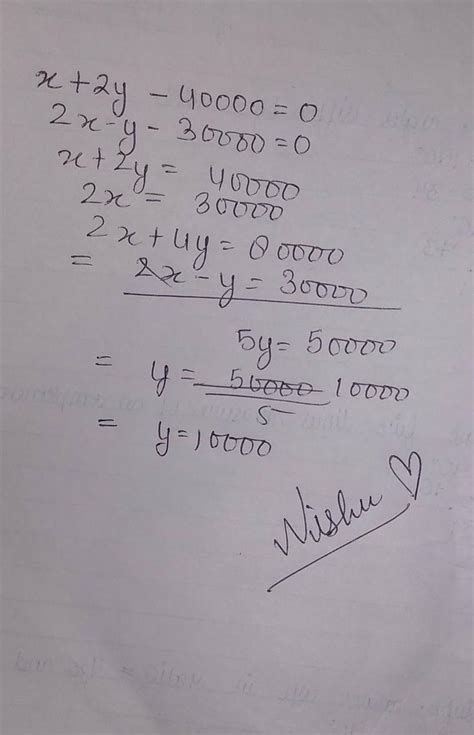 x + 2y - 40000 = 0
2x - y - 30000 = 0
x + 2y = 40000
2x = 30000
2x + 4y = 80000
= 2x - y = 30000
5y = 50000
= y = 50000 10000
5
= y = 10000
Nishu ♡